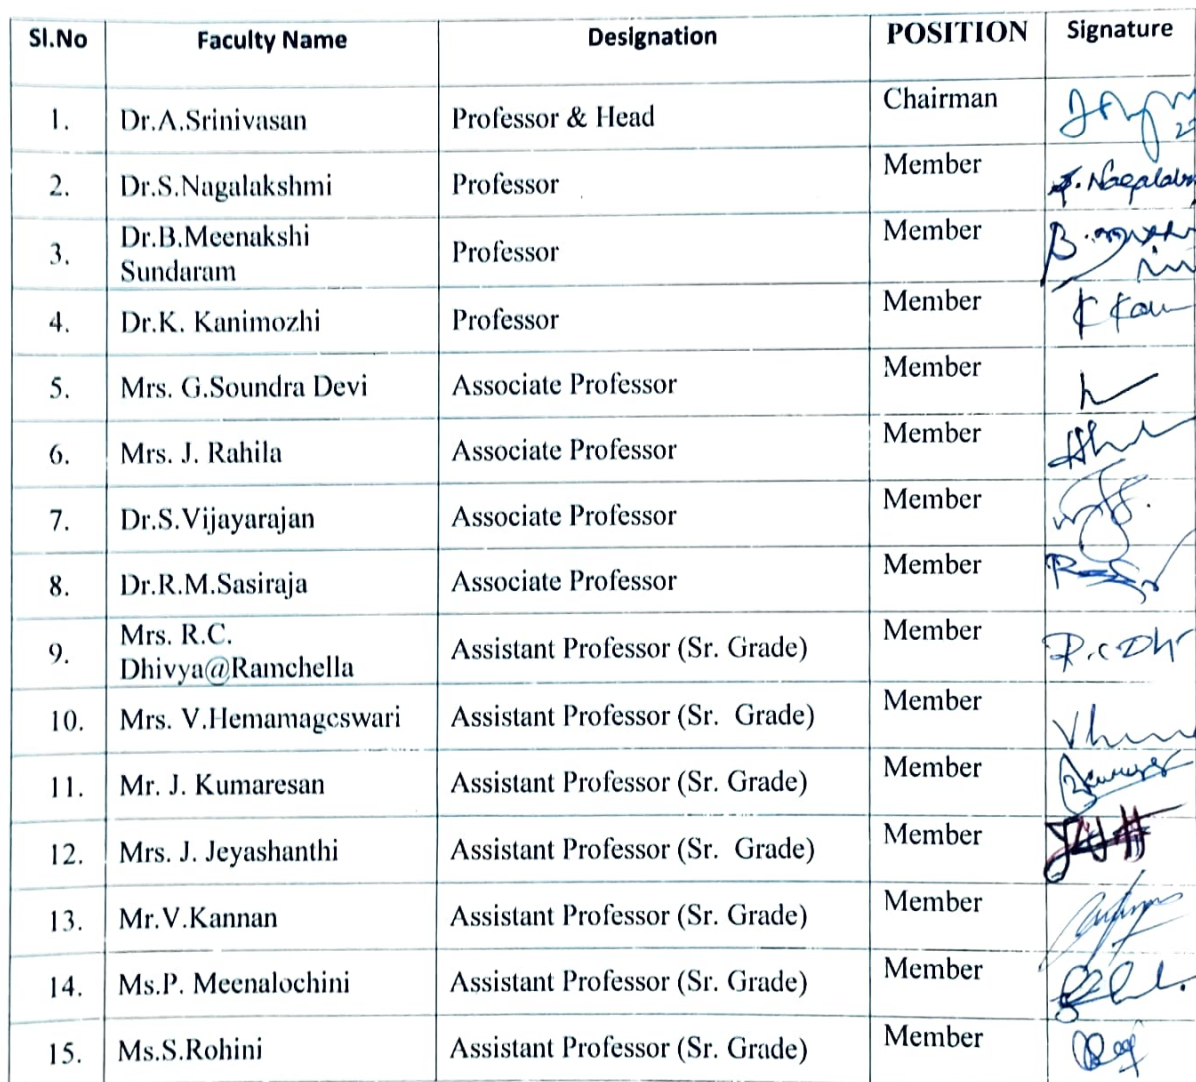 Sl.No Faculty Name Designation POSITION Signature
1. Dr.A.Srinivasan Professor & Head Chairman
2. Dr.S.Nagalakshmi Professor Member
3. Dr.B.Meenakshi Sundaram Professor Member
4. Dr.K. Kanimozhi Professor Member
5. Mrs. G.Soundra Devi Associate Professor Member
6. Mrs. J. Rahila Associate Professor Member
7. Dr.S.Vijayarajan Associate Professor Member
8. Dr.R.M.Sasiraja Associate Professor Member
9. Mrs. R.C. Dhivya@Ramchella Assistant Professor (Sr. Grade) Member
10. Mrs. V.Hemamageswari Assistant Professor (Sr. Grade) Member
11. Mr. J. Kumaresan Assistant Professor (Sr. Grade) Member
12. Mrs. J. Jeyashanthi Assistant Professor (Sr. Grade) Member
13. Mr.V.Kannan Assistant Professor (Sr. Grade) Member
14. Ms.P. Meenalochini Assistant Professor (Sr. Grade) Member
15. Ms.S.Rohini Assistant Professor (Sr. Grade) Member